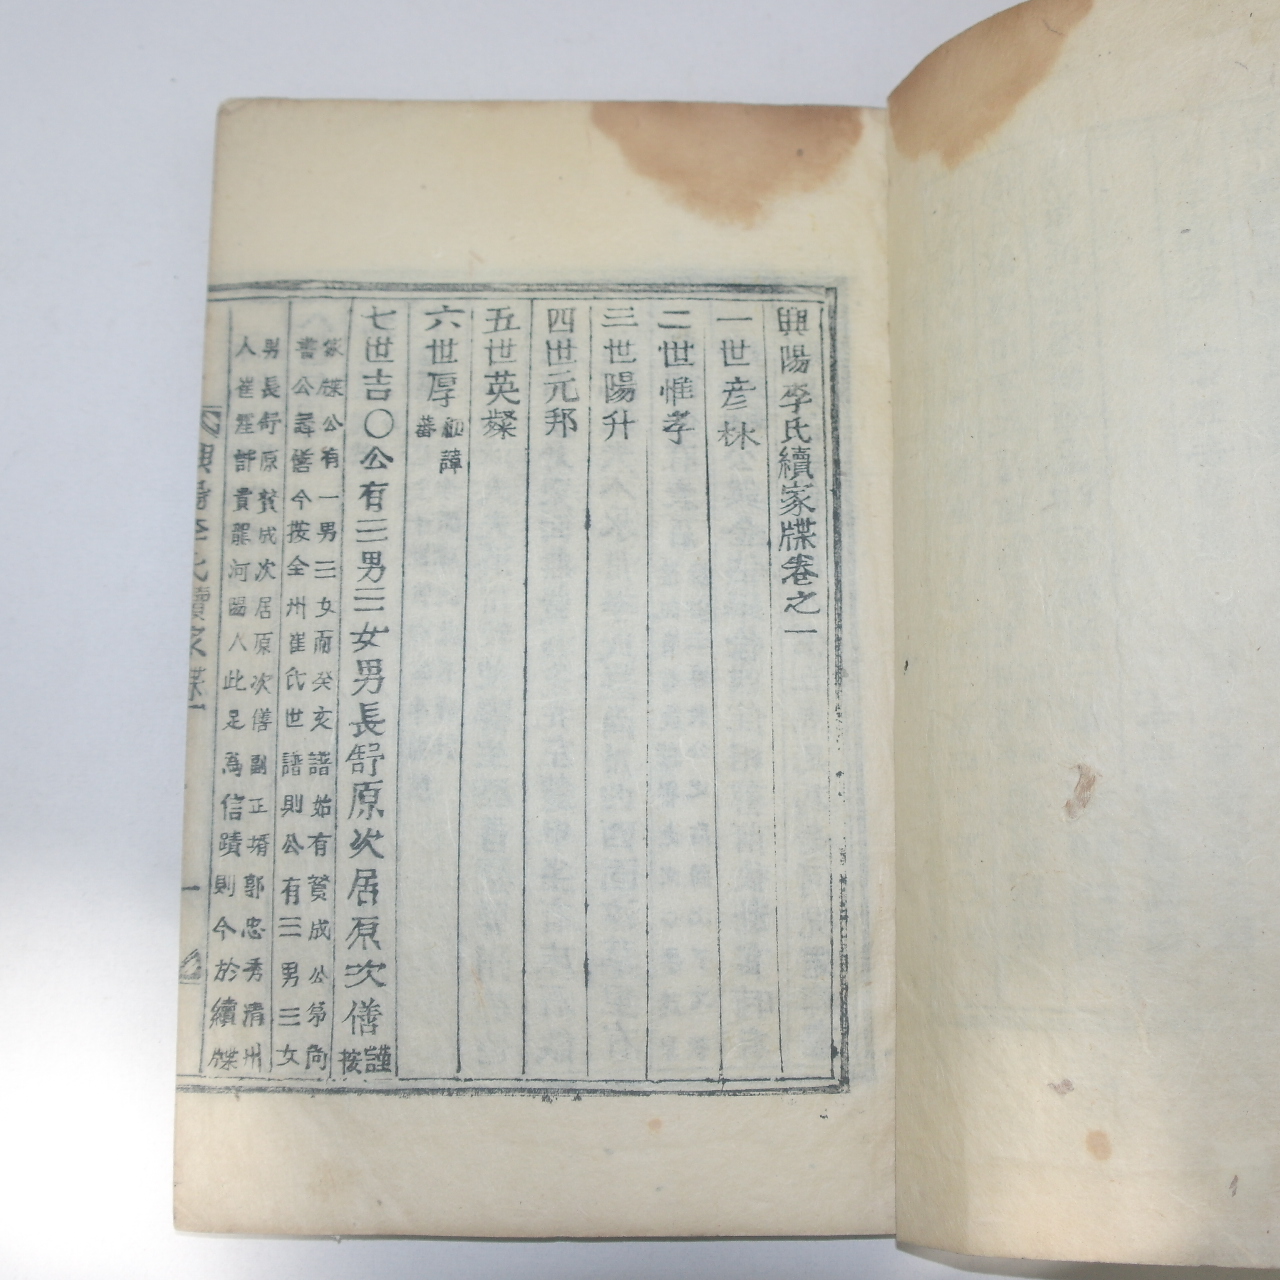 興陽李氏續家牒卷之一
一世彦林
二世惟孝
三世陽升
四世元邦
五世英粲
六世厚初諱蕃
七世吉〇公有三男三女男長舒原次居原次僐謹按
家牒公有一男三女而癸亥譜始有贊成公第尚
書公尋僐今按全州崔氏世譜則公有三男三女
男長舒原贊成次居原次僐副正壻郭忠秀清州
人崔霆許貴龍河陽人此足為信蹟則今於續牒
興陽李氏續家牒 一 一